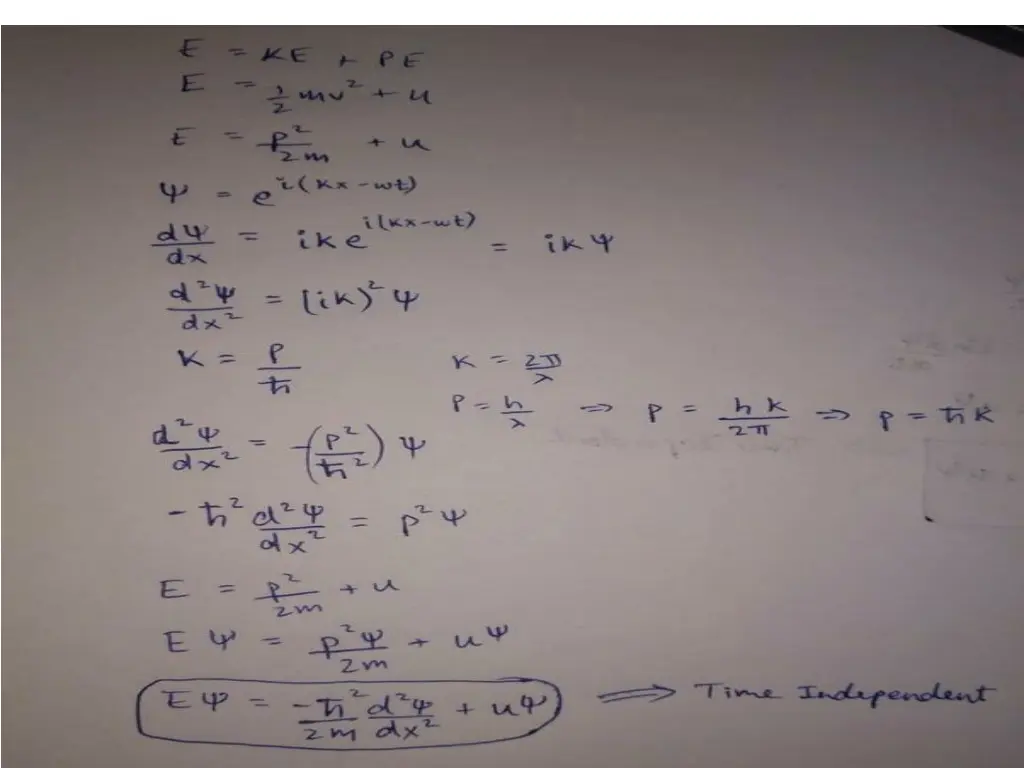 E = KE + PE
E = 1/2 mv² + u
E = p²/2m + u
Ψ = e^i(kx-wt)
dΨ/dx = ike^i(kx-wt) = ikΨ
d²Ψ/dx² = (ik)²Ψ
k = p/ħ   k = 2π/λ
p = h/λ ⇒ p = hk/2π ⇒ p = ħk
d²Ψ/dx² = -(p²/ħ²)Ψ
-ħ² d²Ψ/dx² = p²Ψ
E = p²/2m + u
EΨ = p²Ψ/2m + uΨ
EΨ = -ħ²/2m d²Ψ/dx² + uΨ ⇒ Time Independent